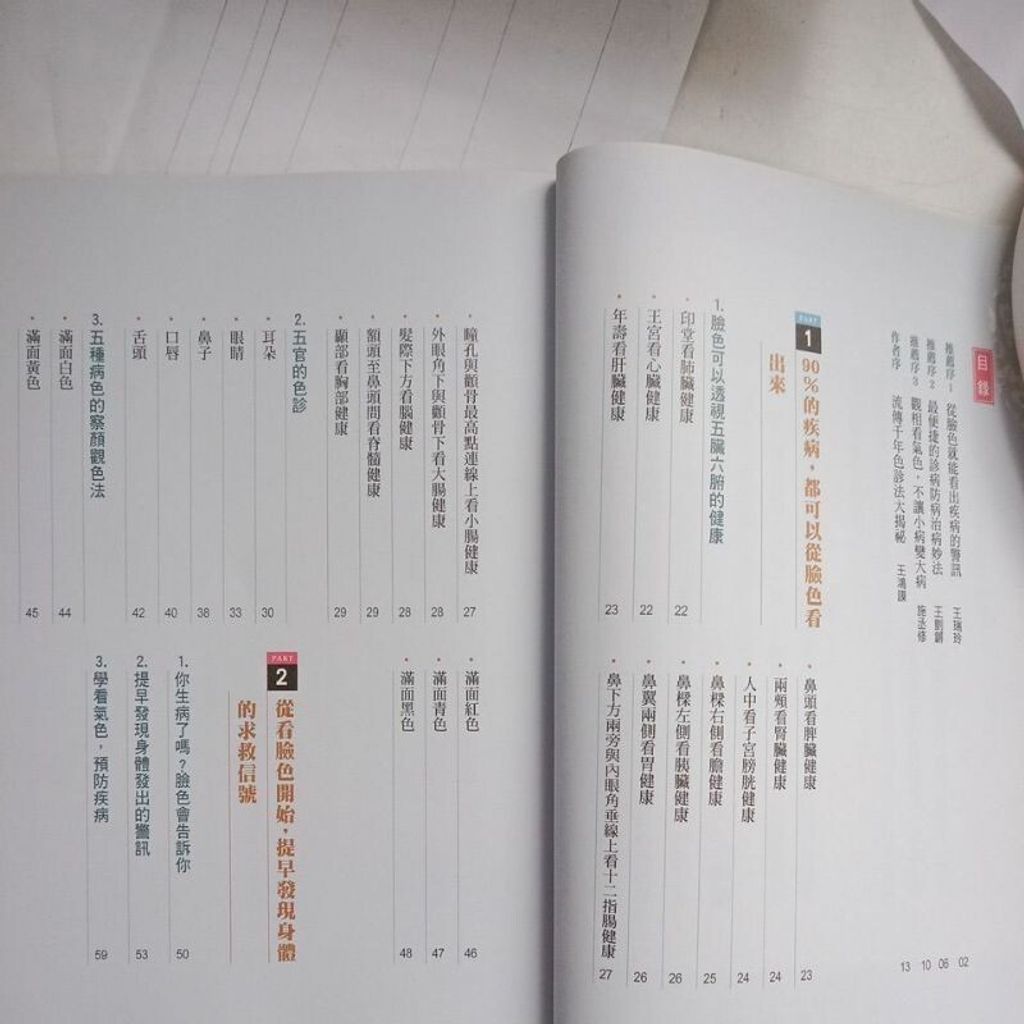 目錄
推薦序1 從臉色就能看出疾病的警訊 王瑞玲 02
推薦序2 最便捷的診病防病治病妙法 王劉鏘 06
推薦序3 觀相看氣色,不讓小病變大病 施丞修 10
作者序 流傳千年色診法大揭祕 王鴻謨 13
PART 1 90%的疾病,都可以從臉色看
出來
1. 臉色可以透視五臟六腑的健康
・印堂看肺臟健康 22
・王宮看心臟健康 22
・年壽看肝臟健康 23
・鼻頭看脾臟健康 23
・兩頰看腎臟健康 24
・人中看子宮膀胱健康 24
・鼻樑右側看膽健康 25
・鼻樑左側看胰臟健康 26
・鼻翼兩側看胃健康 26
・鼻下方兩旁與內眼角垂線上看十二指腸健康 27
・瞳孔與顴骨最高點連線上看小腸健康 27
・外眼角下與顴骨下看大腸健康 28
・髮際下方看腦健康 28
・額頭至鼻頭間看脊髓健康 29
・顳部看胸部健康 29
2. 五官的色診
・耳朵 30
・眼睛 33
・鼻子 38
・口唇 40
・舌頭 42
3. 五種病色的察顏觀色法
・滿面白色 44
・滿面黃色 45
・滿面紅色 46
・滿面青色 47
・滿面黑色 48
PART 2 從看臉色開始,提早發現身體
的求救信號
1. 你生病了嗎?臉色會告訴你 50
2. 提早發現身體發出的警訊 53
3. 學看氣色,預防疾病 59